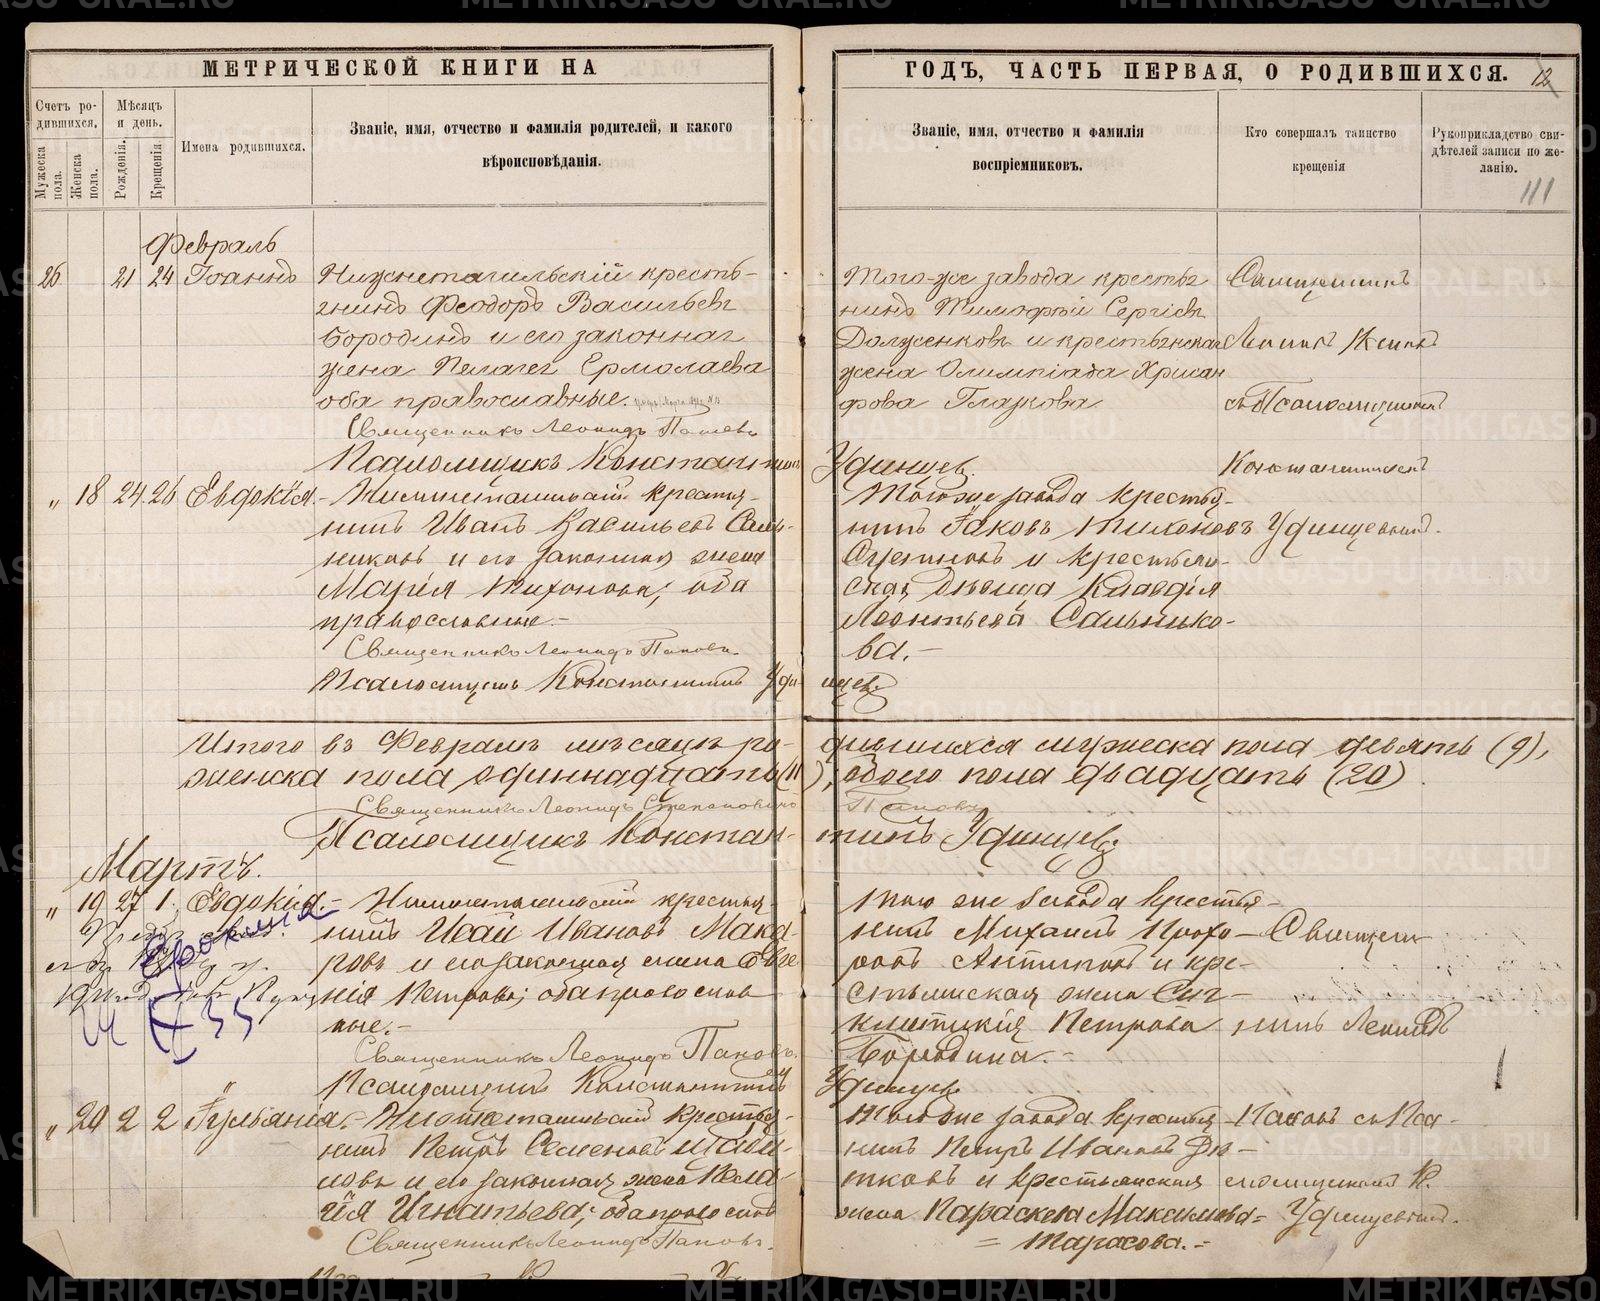 МЕТРИЧЕСКОЙ КНИГИ НА
ГОДЪ, ЧАСТЬ ПЕРВАЯ, О РОДИВШИХСЯ. 12
Счетъ ро-
дившихся.
Мѣсяцъ
и день.
Мужеска
пола.
Женска
пола.
Рожденія.
Крещенія.
Имена родившихся.
Званіе, имя, отчество и фамилія родителей, и какого
вѣроисповѣданія.
Званіе, имя, отчество и фамилія
воспріемниковъ.
Кто совершалъ таинство
крещенія
Рукоприкладство сви-
дѣтелей записи по же-
ланію.
111
Февраль
26 21 24 Іоаннъ
Нижнетагильскій кресть-
янинъ Феодоръ Васильевъ
Бородинъ и его законная
жена Пелагея Ермолаева
оба православные.
Священникъ Леонидъ Поповъ
Псаломщикъ Константинъ Удинцев.
Того-же завода крестья
нинъ Тимофей Сергіевъ
Долженковъ и крестьянская
жена Олимпіада Хрисан
фова Глазкова
Священникъ
Леонидъ Поповъ
съ Псаломщикомъ
Константиномъ
Удинцевымъ.
" 18 24 26 Евдокія.-
Нижнетагильскій крестья-
нинъ Иванъ Васильевъ Саль-
никовъ и его законная жена
Марія Тихонова; оба
православные.-
Священникъ Леонидъ Поповъ.
Псаломщикъ Константинъ Удинцев.
Того же завода крестья-
нинъ Іаковъ Тихоновъ
и крестьян-
ская дѣвица Клавдія
Леонтьева Сальнико-
ва.-
Итого въ Февралѣ мѣсяцѣ ро- дившихся мужеска пола девять (9),
женска пола одиннадцать (11), обоего пола двадцать (20).
Священникъ Леонидъ Степановичъ Поповъ
Псаломщикъ Констан- тинъ Удинцевъ
Мартъ.
" 19 27 1 Евдокія.-
Нижнетагильскій крестья-
нинъ Исай Ивановъ Мака-
ровъ и его законная жена Евге-
нія Петрова; оба православ
ные.-
Священникъ Леонидъ Поповъ.
Псаломщикъ Константинъ Удинцев
Того же завода крестья-
нинъ Михаилъ Прохо-
ровъ Антиповъ и кре-
стьянская жена Син-
клитикія Петрова
Бородина.-
Священ-
никъ Леонидъ
Евдокия
" 20 2 2 Іуліанія.-
Нижнетагильскій крестья-
нинъ Петръ Семеновъ
и его законная жена Пела-
гія Игнатьева; оба православ
Священникъ Леонидъ Поповъ.
Того же завода крестья-
нинъ Петръ Ивановъ Дю-
тковъ и крестьянская
жена Параскева Максимова
= Тарасова.-
Поповъ съ Пса-
ломщикомъ К.
Удинцевымъ.
METRIKI.GASO-URAL.RU